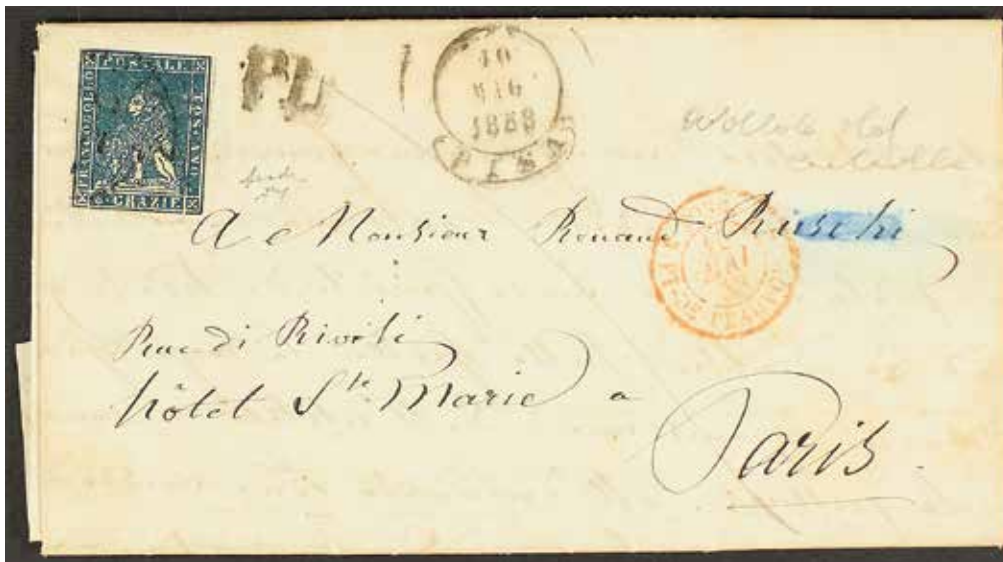 FRANCOBOLLO
POSTALE
TOSCANO
6 CRAZIE
PD
10
MAG
1858
PISA
A Monsieur Renaud Ruschi
MAI
Rue di Rivoli
hôtel Ste. Marie a
Paris.